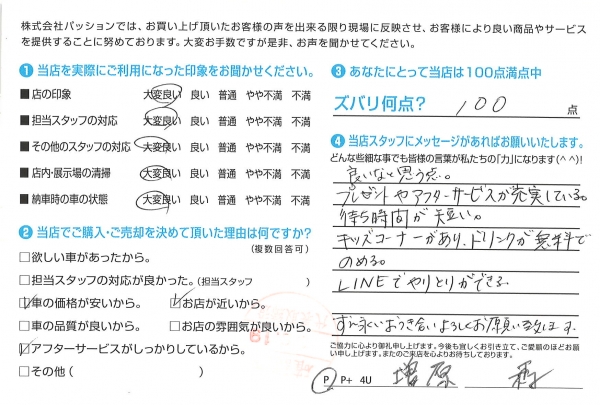 株式会社パッションでは、お買い上げ頂いたお客様の声を出来る限り現場に反映させ、お客様により良い商品やサービス
を提供することに努めております。大変お手数ですが是非、お声を聞かせてください。
❶ 当店を実際にご利用になった印象をお聞かせください。
■店の印象 大変良い 良い 普通 やや不満 不満
■担当スタッフの対応 大変良い 良い 普通 やや不満 不満
■その他のスタッフの対応 大変良い 良い 普通 やや不満 不満
■店内・展示場の清掃 大変良い 良い 普通 やや不満 不満
■納車時の車の状態 大変良い 良い 普通 やや不満 不満
❷ 当店でご購入・ご売却を決めて頂いた理由は何ですか?
(複数回答可)
□欲しい車があったから。
□担当スタッフの対応が良かった。(担当スタッフ )
☑車の価格が安いから。 ☑お店が近いから。
□車の品質が良いから。 □お店の雰囲気が良いから。
☑アフターサービスがしっかりしているから。
□その他( )
❸ あなたにとって当店は100点満点中
ズバリ何点? 100 点
❹ 当店スタッフにメッセージがあればお願いいたします。
どんな些細な事でも皆様の言葉が私たちの「力」になります(^^)!
良いなと思う点。
プレゼントやアフターサービスが充実している。
待ち時間が短い。
キッズコーナーがあり、ドリンクが無料で
のめる。
LINEでやりとりができる
すえ永いおつき合いよろしくお願い致します。
ご協力に心より御礼申し上げます。今後も宜しくお引き立て、ご愛顧のほどお願
い申し上げます。またのご来店を心よりお待ちしております。
P P+ 4U 増原